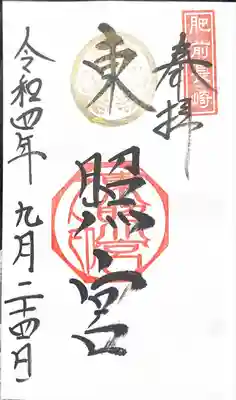 肥前長崎
奉拝
東照宮
令和四年九月二十四日